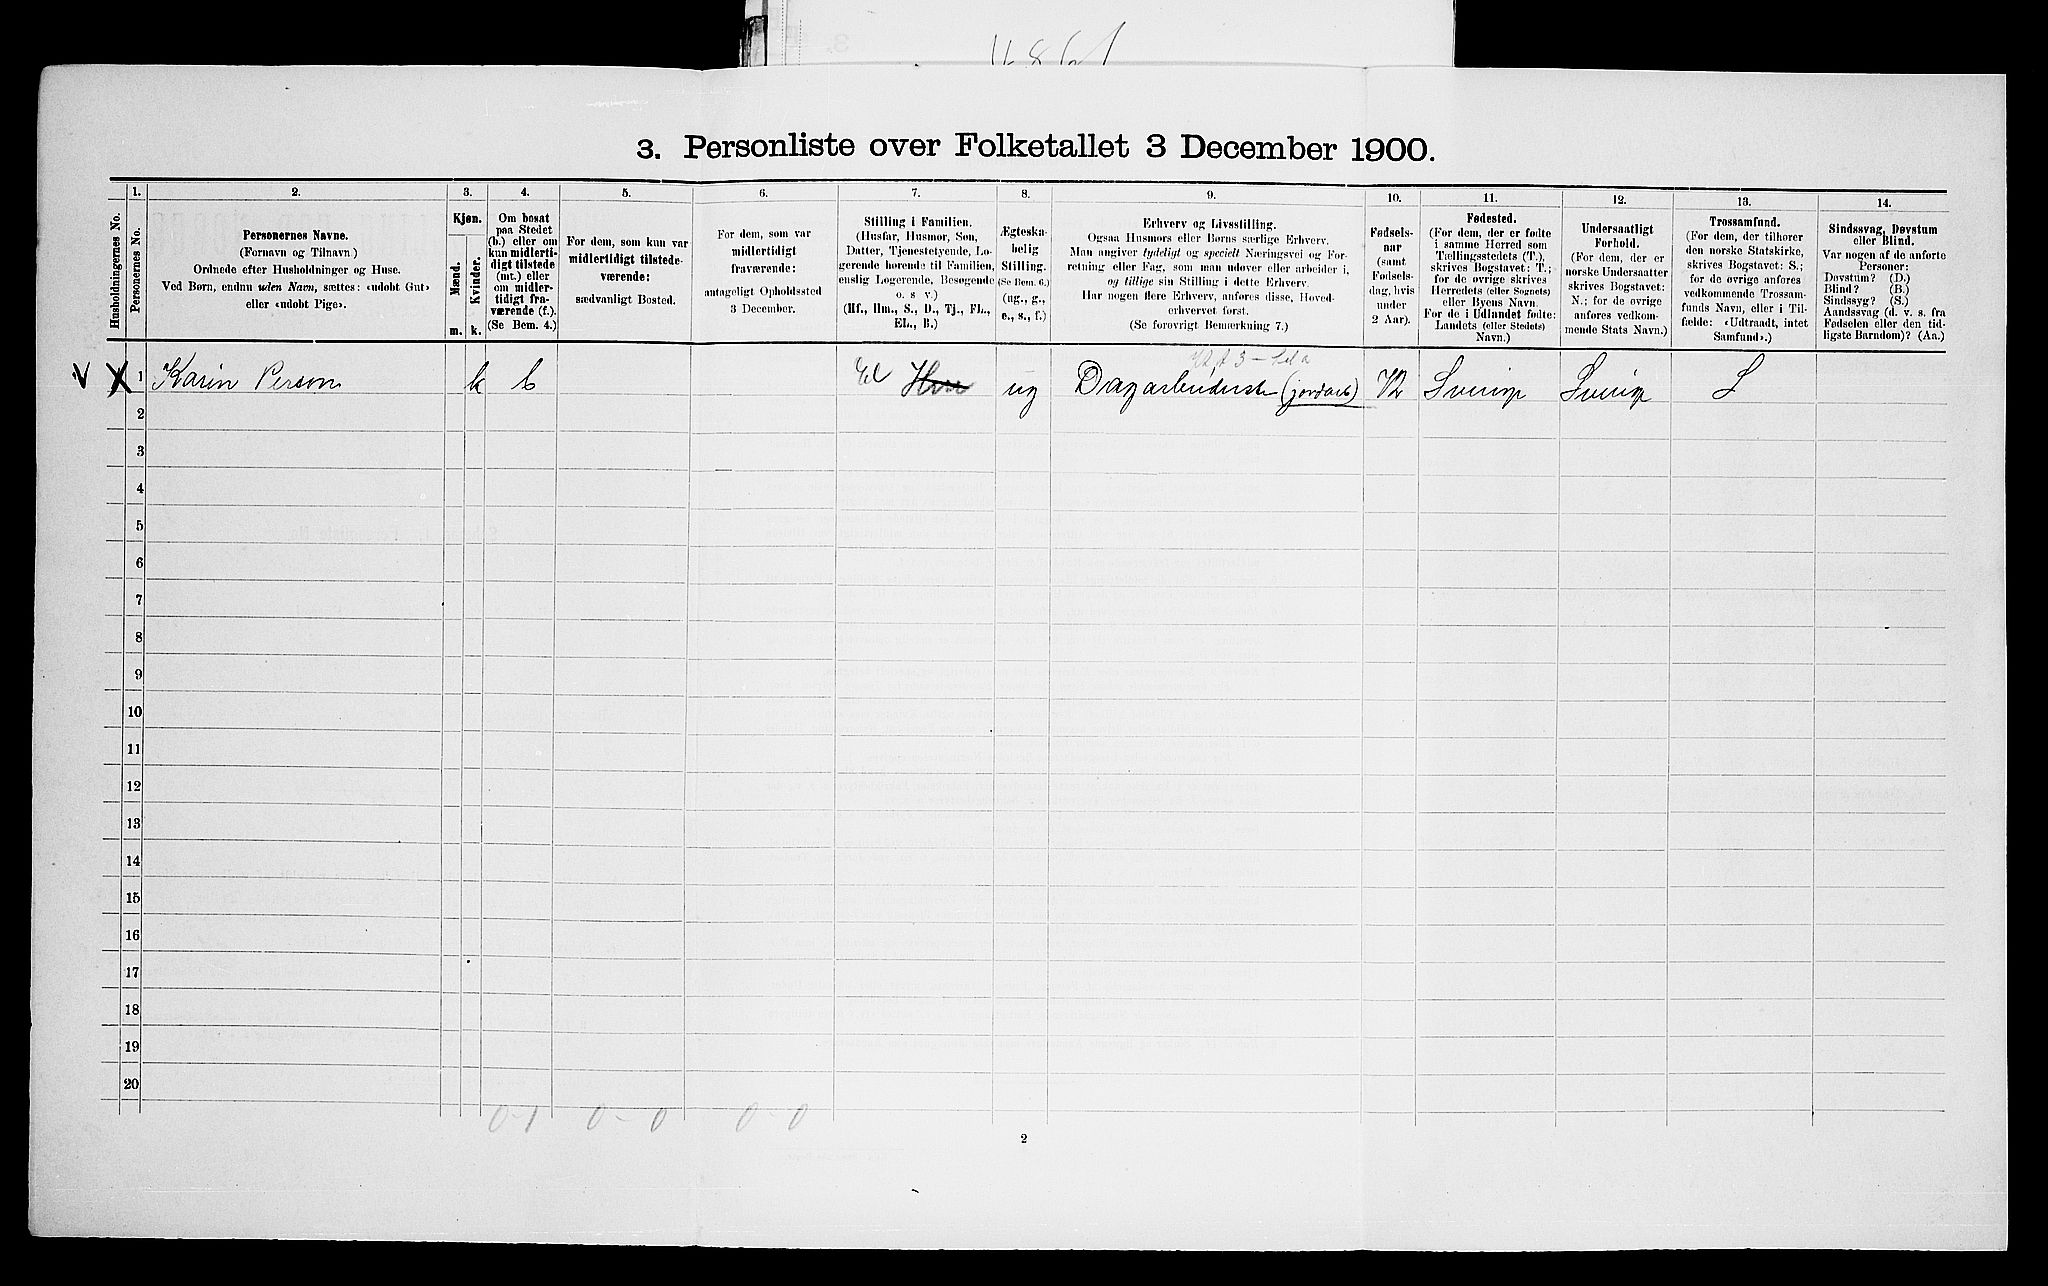 3. Personliste over Folketallet 3 December 1900.
1. 2. 3. 4. 5. 6. 7. 8. 9. 10. 11. 12. 13. 14.
Husholdningernes No.
Personernes No.
Personernes Navne.
(Fornavn og Tilnavn)
Ordnede efter Husholdninger og Huse.
Ved Børn, endnu uden Navn, sættes: «udøbt Gut»
eller «udøbt Pige».
Kjøn.
Mænd.
Kvinder.
m. k.
Om bosat
paa Stedet
(b.) eller om
kun midlerti-
digt tilstede
(mt.) eller
om midler-
tidigt fra-
værende (f.).
(Se Bem. 4.)
For dem, som kun var
midlertidigt tilstede-
værende:
sædvanligt Bosted.
For dem, som var
midlertidigt
fraværende:
antageligt Opholdssted
3 December.
Stilling i Familien.
(Husfar, Husmor, Søn,
Datter, Tjenestetyende, Lo-
gerende hørende til Familien,
enslig Logerende, Besøgende
o. s. v.)
(Hf., Hm., S., D., Tj., FL.,
EL., B.)
Ægteska-
belig
Stilling.
(Se Bem. 6.)
(ug., g.,
e., s., f.)
Erhverv og Livsstilling.
Ogsaa Husmors eller Børns særlige Erhverv.
Man angiver tydeligt og specielt Næringsvei og For-
retning eller Fag, som man udøver eller arbeider i,
og tillige sin Stilling i dette Erhverv.
Har nogen flere Erhverv, anføres disse, Hoved-
erhvervet først.
(Se forøvrigt Bemerkning 7.)
Fødsels-
aar
(samt
Fødsels-
dag, hvis
under
2 Aar).
Fødested.
(For dem, der er fødte
i samme Herred som
Tællingsstedets (T.),
skrives Bogstavet: T.;
for de øvrige skrives
Herredets (eller Sognets)
eller Byens Navn.
For de i Udlandet fødte:
Landets (eller Stedets)
Navn.)
Undersaatligt
Forhold.
(For dem, der er
norske Undersaatter
skrives Bogstavet:
N.; for de øvrige
anføres vedkom-
mende Stats Navn.)
Trossamfund.
(For dem, der tilhører
den norske Statskirke,
skrives Bogstavet: S.;
for de øvrige anføres
vedkommende Trossam-
funds Navn, eller i Til-
fælde: «Udtraadt, intet
Samfund».)
Sindssvag, Døvstum
eller Blind.
Var nogen af de anførte
Personer:
Døvstum? (D.)
Blind? (B.)
Sindssyg? (S.)
Aandssvag (d. v. s. fra
Fødselen eller den tid-
ligste Barndom)? (Aa.)
1 Karin Person k b El ug Dagarbeiderske (jordarb) 72 Sverige Sverige S
2
3
4
5
6
7
8
9
10
11
12
13
14
15
16
17
18
19
20
0-1 0-0 0-0
2